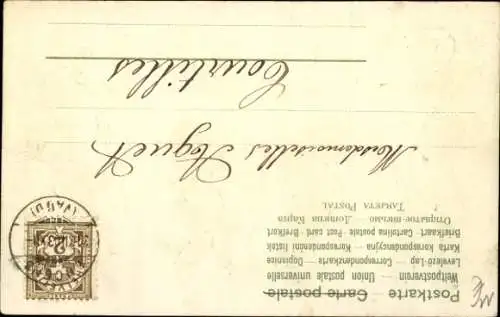 Postkarte Carte postale
Weltpostverein — Union postale universelle
Levelező-Lap — Correspondenzkarte — Dopisnice
Karta korespondencyjna — Korespondenční lístek
Briefkaart — Cartolina postale — Post card — Brefkort
Открытое письмо — Дописна Карта
Tarjeta Postal
Mademoiselles
Courtilles
(VAUD)